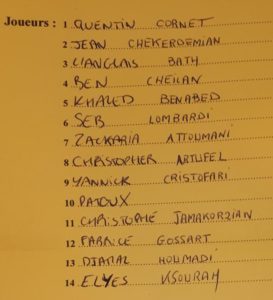 Joueurs : 1 QUENTIN CORNET
2 JEAN CHEKERDEMIAN
3 L'ANGLAIS BATH
4 BEN CHEILAN
5 KHALED BENABED
6 SEB LOMBARDI
7 ZACKARIA ATTOUMANI
8 CHRISTOPHER ARTUFEL
9 YANNICK CRISTOFARI
10 PATOUX
11 CHRISTOPHE JAMAKORZIAN
12 FABRICE GOSSART
13 DJAMAL HOUMADI
14 ELYES KSOURAH